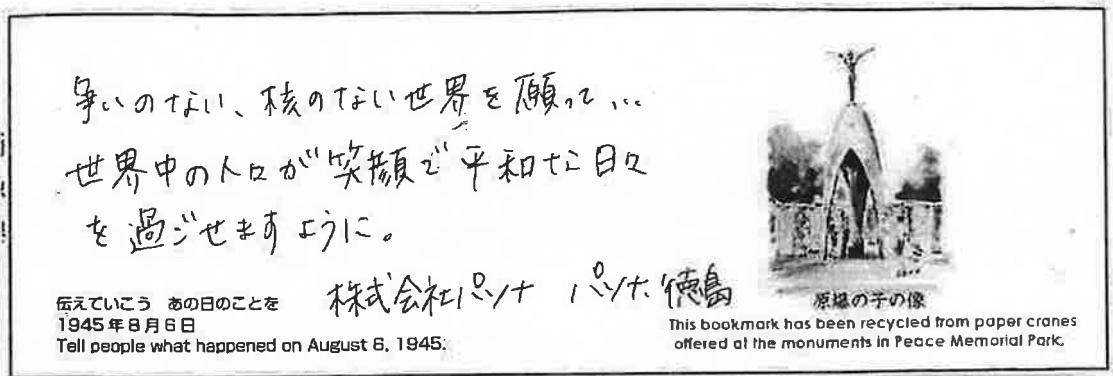 争いのない、核のない世界を願って...
世界中の人々が笑顔で平和な日々
を過ごせますように。
株式会社パソナ パソナ徳島
伝えていこう あの日のことを
1945年8月6日
Tell people what happened on August 6, 1945.
原爆の子の像
This bookmark has been recycled from paper cranes
offered at the monuments in Peace Memorial Park.